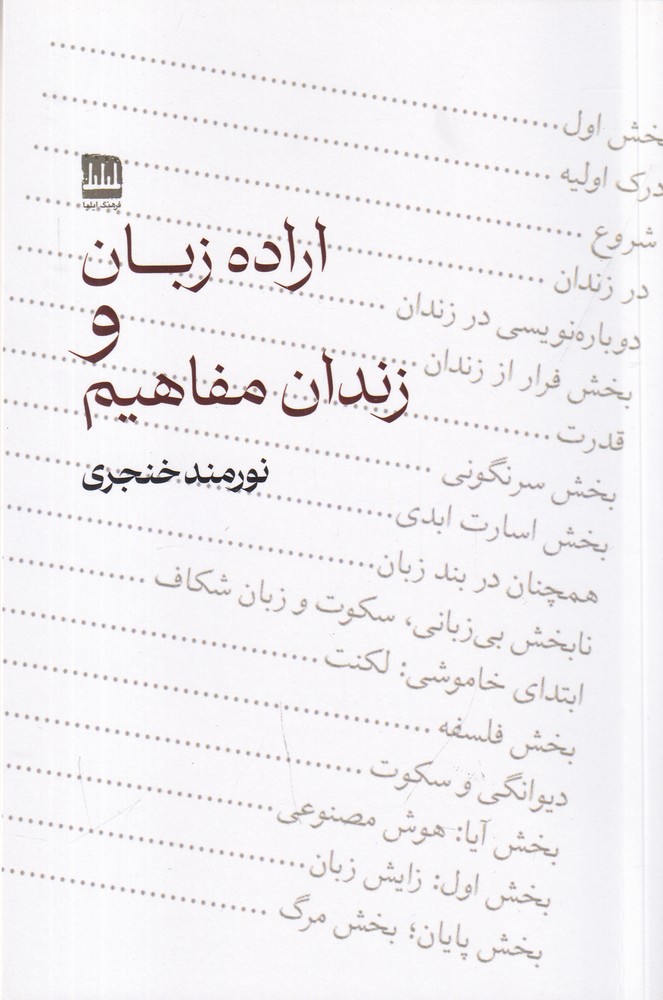 بخش اول
درک اولیه
شروع
در زندان
دوباره‌نویسی در زندان
بخش فرار از زندان
قدرت
بخش سرنگونی
بخش اسارت ابدی
همچنان در بند زبان
نابخش بی‌زبانی، سکوت و زبان شکاف
ابتدای خاموشی: لکنت
بخش فلسفه
دیوانگی و سکوت
بخش آیا: هوش مصنوعی
بخش اول: زایش زبان
بخش پایان؛ بخش مرگ
فرهنگ ایلیا
اراده زبان
و
زندان مفاهیم
نورمند خنجری